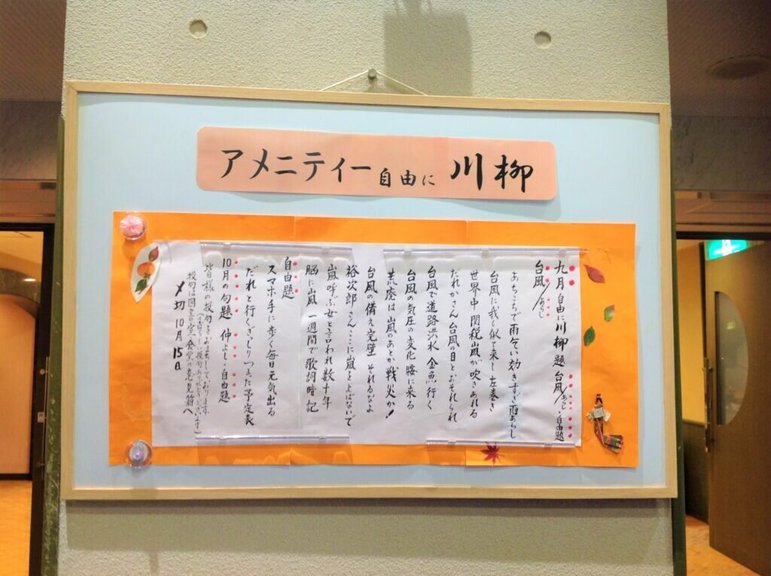 アメニティー自由に川柳
九月自由に川柳 題 台風/あらし・自由題
台風/あらし
あちこちで雨乞い効きすぎ雨あらし
台風に我くせ似て来し左巻き
世界中関税嵐が吹きあれる
だれかさん台風の目とおそれられ
台風で道路洪水金魚行く
台風の気圧の変化腰に来る
荒廃は嵐のあとか戦火か!
台風の備え完璧それるなよ
裕次郎さんここに嵐をよばないで
嵐呼ぶ女と言われ数十年
脳に嵐一週間で歌詞暗記
自由題
スマホ手に歩く毎日元気出る
だれと行くぎっしりつまった予定表
10月の句題 仲よし・自由題
皆様の投句をお待ちしております
投句は図書室、食堂の意見箱へ
〆切10月15日